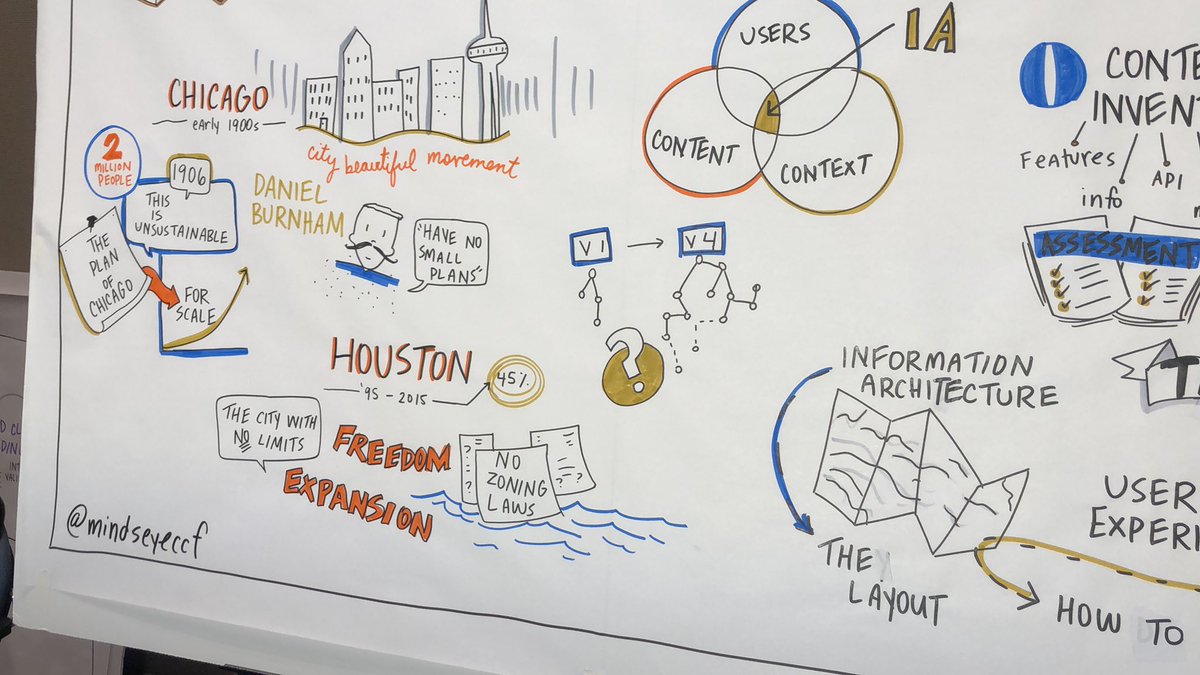 CHICAGO
early 1900s
city beautiful movement
2
MILLION
PEOPLE
1906
THIS
IS
UNSUSTAINABLE
THE
PLAN
OF
CHICAGO
FOR
SCALE
DANIEL
BURNHAM
"HAVE NO
SMALL
PLANS"
HOUSTON
'95 - 2015
45%
THE CITY WITH
NO LIMITS
FREEDOM
EXPANSION
NO
ZONING
LAWS
? ? ?
?
@mindseyeccf
USERS
IA
CONTENT
CONTEXT
V1
V4
?
CONTE
INVEN
Features
info
API
ASSESSMENT
INFORMATION
ARCHITECTURE
THE
LAYOUT
T
USER
EXPERI
HOW TO